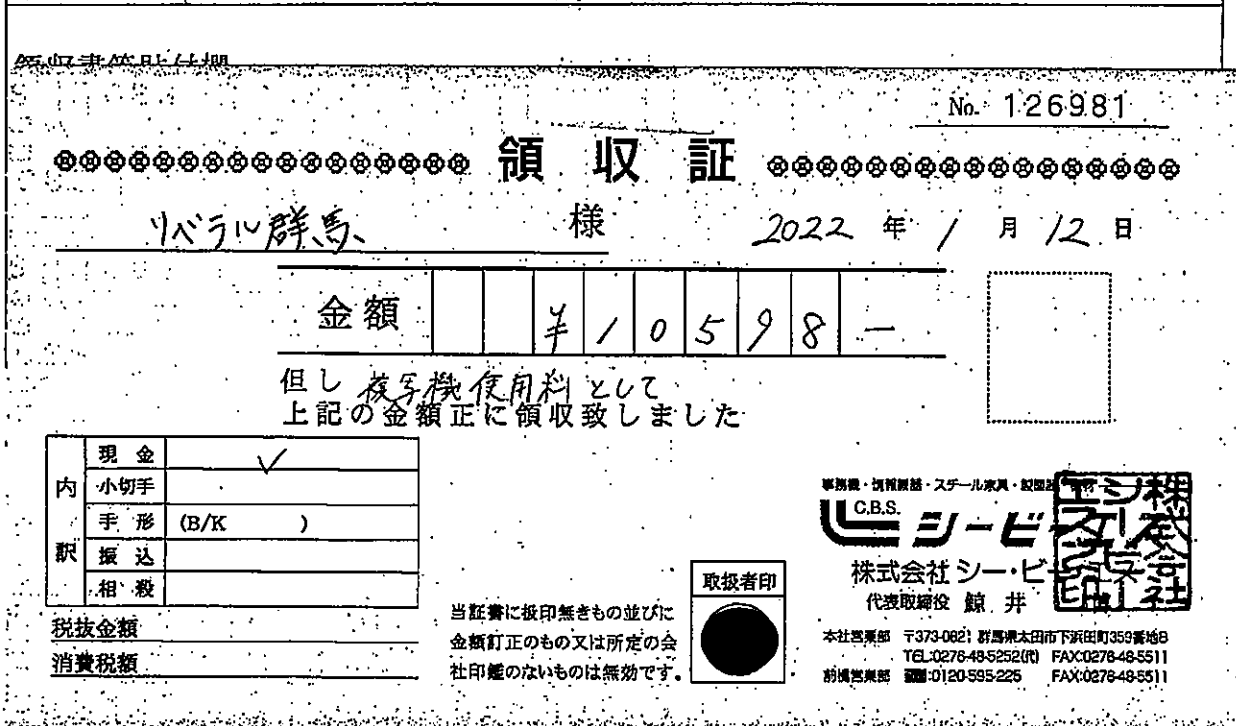 領収書等貼付欄
No. 126981
領収証
リベラル群馬 様 2022年1月12日
金額 ¥10598-
但し 複写機使用料として
上記の金額正に領収致しました
内訳
現金 ✓
小切手
手形 (B/K )
振込
相殺
税抜金額
消費税額
当証書に扱印無きもの並びに
金額訂正のもの又は所定の会
社印鑑のないものは無効です。
取扱者印
事務機・情報機器・スチール家具・
C.B.S.
シービー
株式会社 シー・ビー・エス
代表取締役 鯨井
本社営業部 〒373-0821 群馬県太田市下浜田町359番地8
TEL:0276-48-5252(代) FAX:0276-48-5511
前橋営業部 :0120-595-225 FAX:0276-48-5511